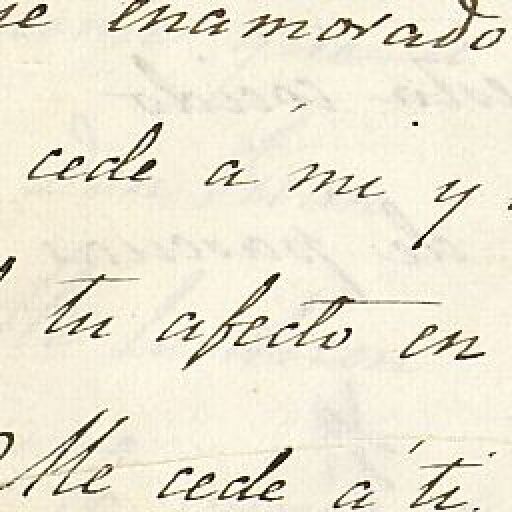 enamorado
cede á mi y
tu afecto en
Me cede á ti.